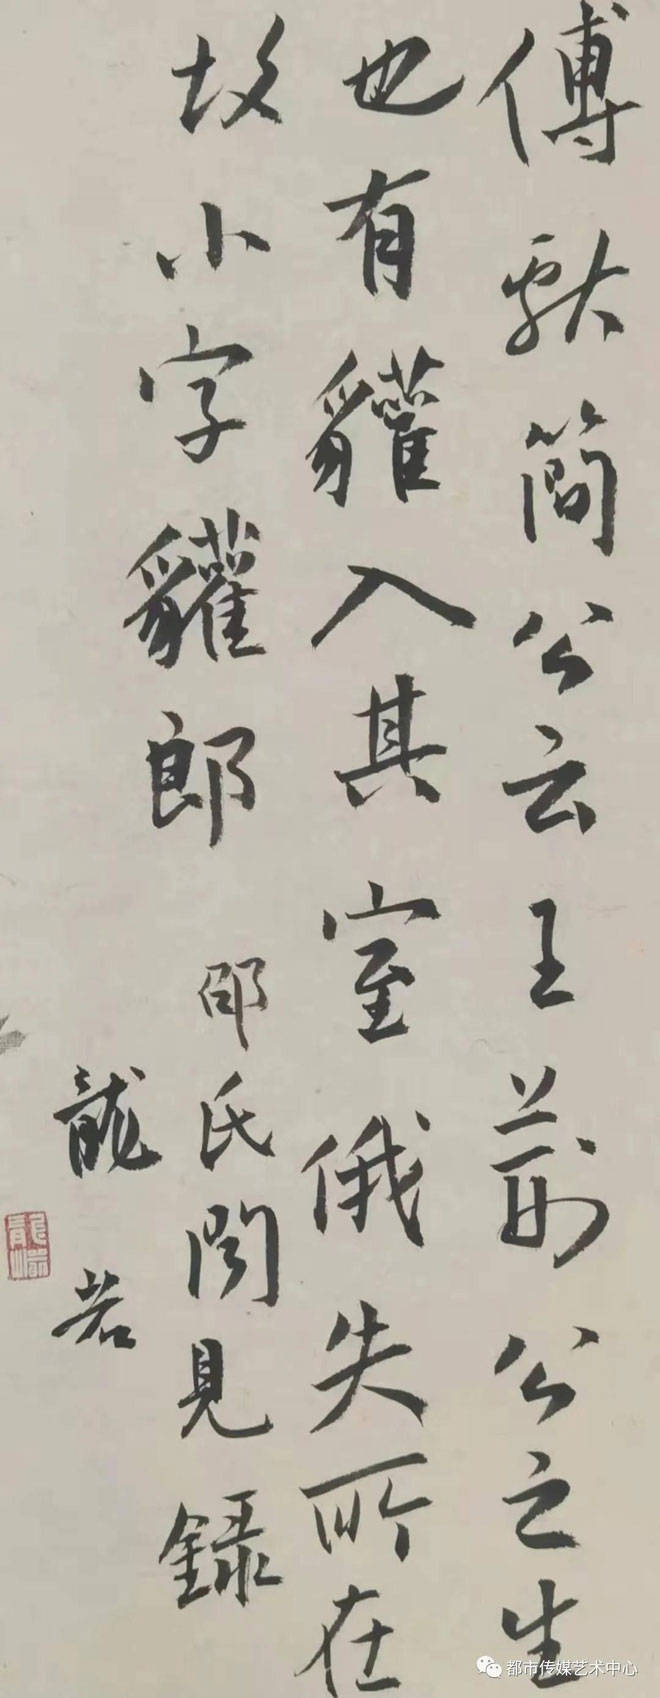 傅献簡公云王荊公之生
也有貛入其室俄失所在
故小字貛郎
邵氏聞見錄
龍若
都市传媒艺术中心